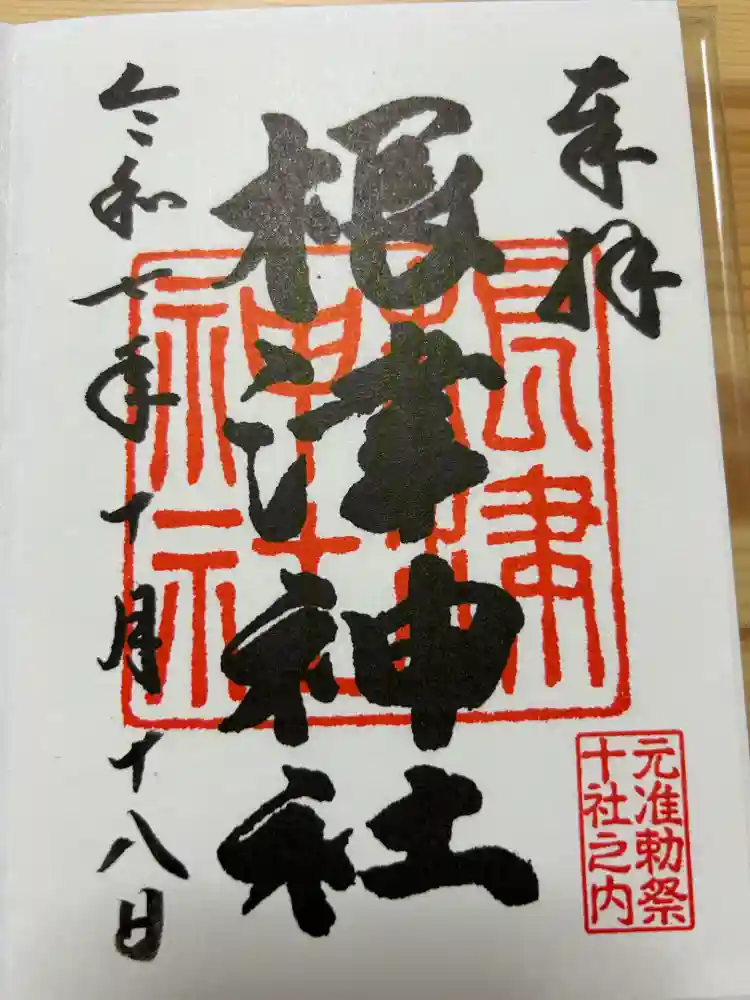 奉拝
根津神社
根津
神社
元准勅祭
十社之内
令和七年十月十八日